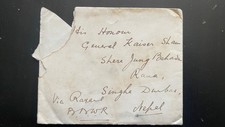 His Honour
General Kaiser Sham
Shere Jung Bahadur
Rana.
Singha Durbar,
Nepal
Via Raxaul
B.N.W.R